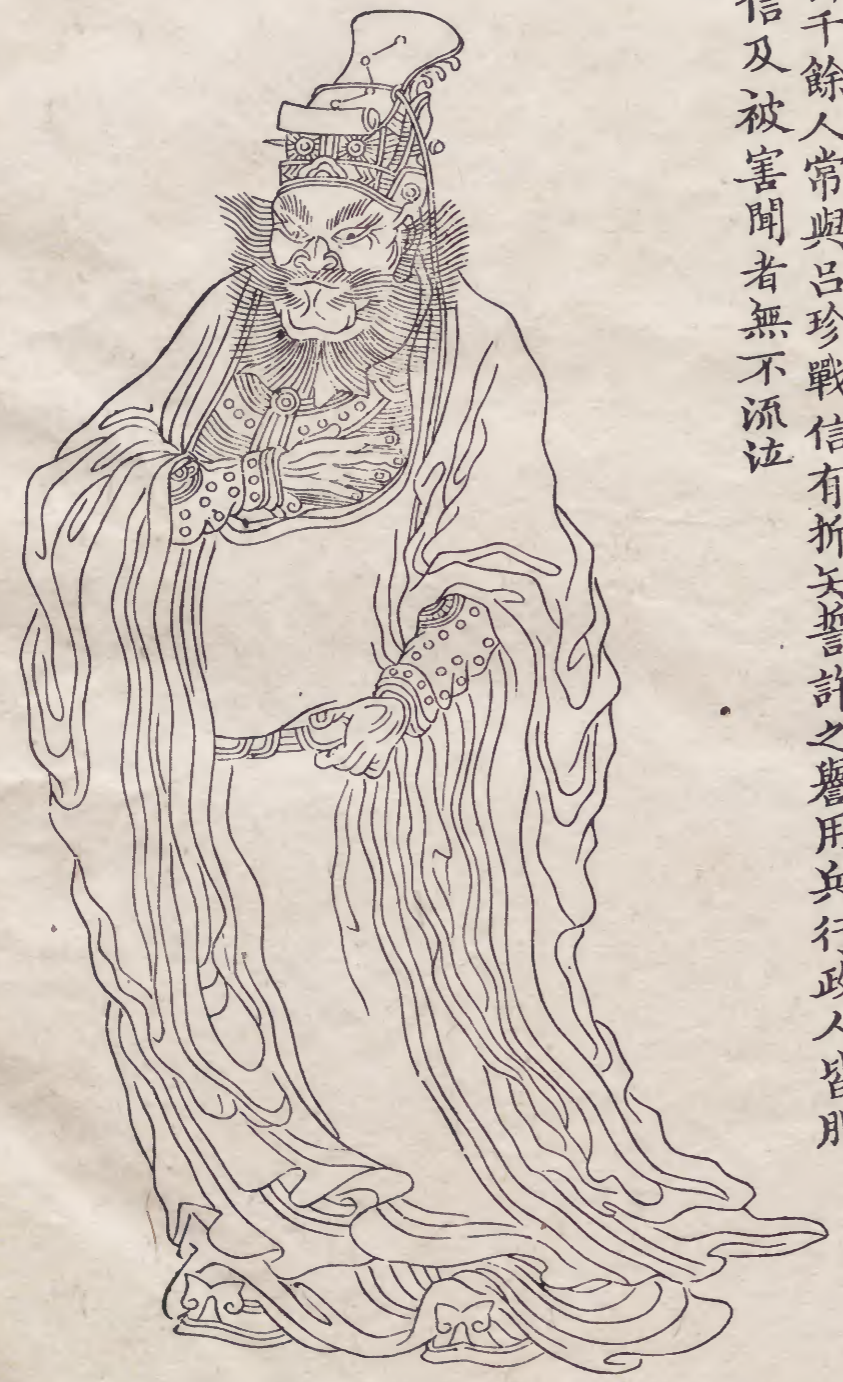 千餘人常與呂珍戰信有折矢誓許之譽用兵行政人皆服
信及被害聞者無不流泣